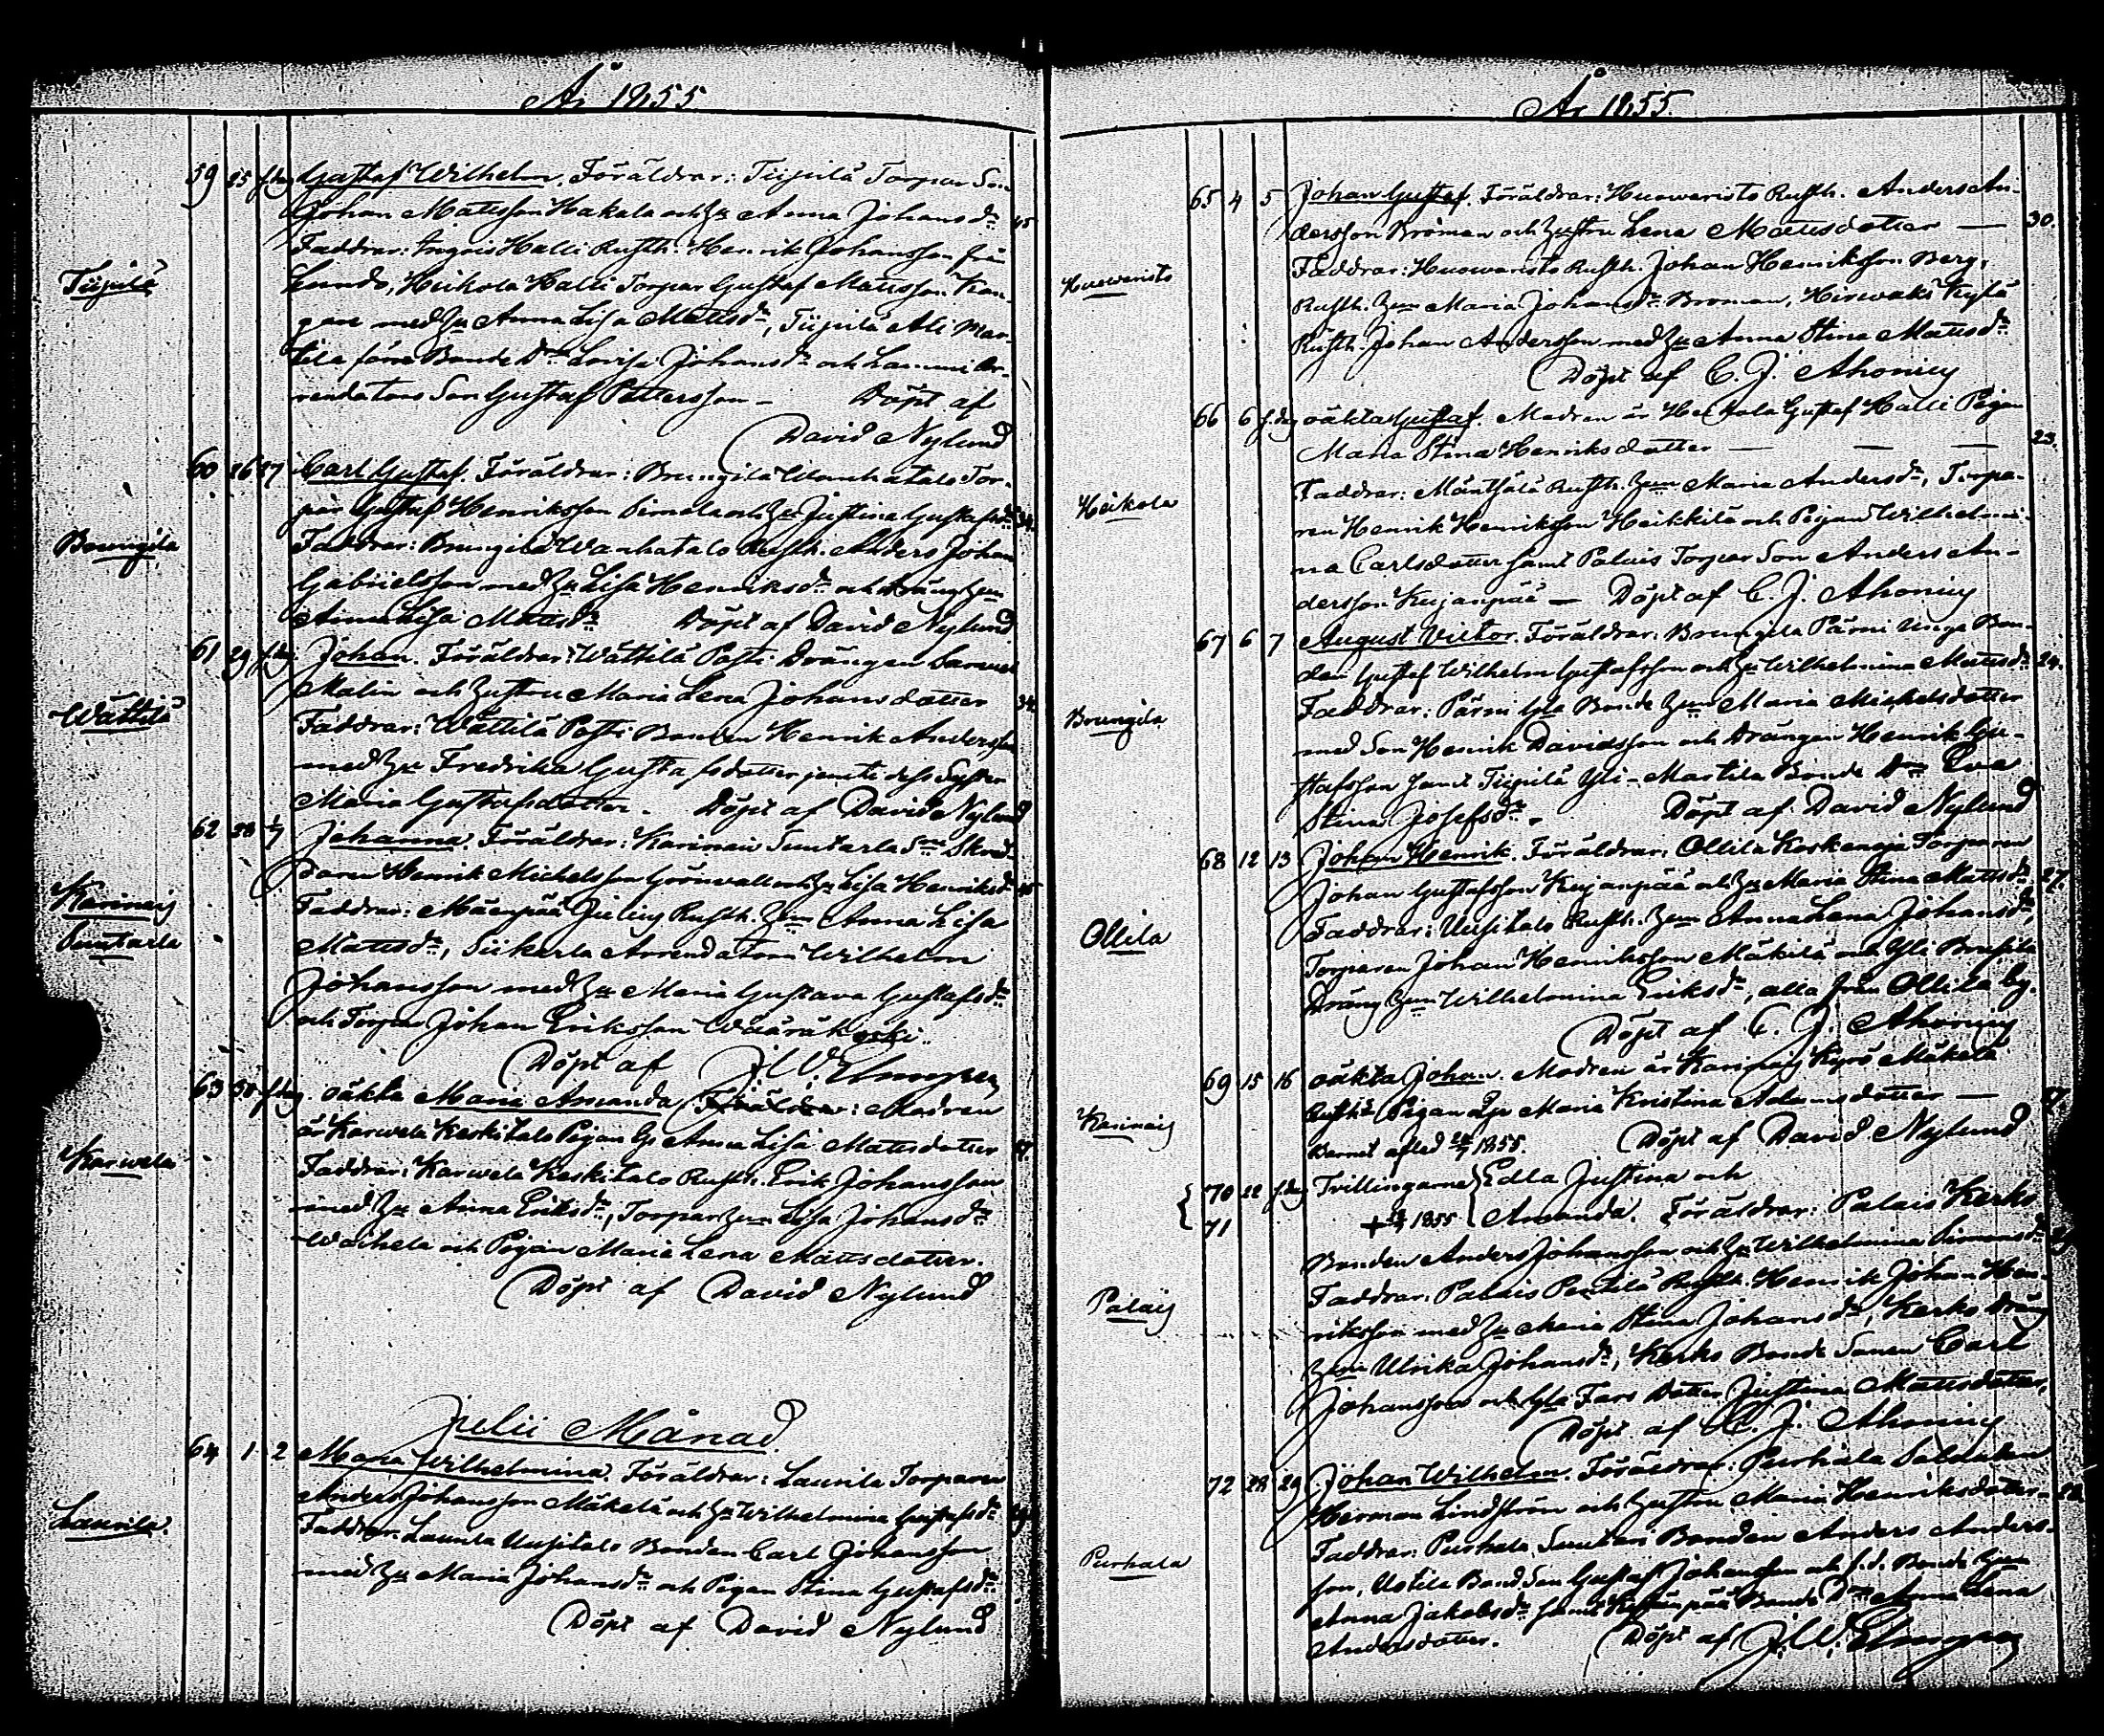 År 1855
59 25 f.dag Gustaf Wilhelm. Föräldrar: Tiipilä Torpar Son
Johan Mattsson Hakala och Hu Anna Johansdr 45
Faddrar: Halli Rusth. Henrik Johansson från
Tiipilä
Lundo, Heikola Halli Torpar Gustaf Mattsson Kan-
gare med Hu Anna Lisa Mattsdr, Tiipilä Ali Mar-
tila förre Bonde Dr Lovisa Johansdr och Lammi Ar-
rendators Son Gustaf Pettersson — Döpt af
David Nylund
60 26 27 Carl Gustaf. Föräldrar: Brungila Wanhatalo Tor-
par Gustaf Henriksson och Hu Justina Gustafsdr 34
Brungila
Faddrar: Brungila Wanhatalo Rusth. Anders Johan
Gabrielsson med Hu Lisa Henriksdr och Dräng Hun
Anna Lisa Mattsdr Döpt af David Nylund
61 29 f.dag Johan. Föräldrar: Wättilä Posti Drängen Samuel
Malin och Hustru Maria Lena Johansdotter 34
Wättilä
Faddrar: Wättilä Posti Bonden Henrik Andersson
med Hu Fredrika Gustafsdotter jemte dess Syster
Maria Gustafsdotter. Döpt af David Nylund
62 28 1/7 Johanna. Föräldrar: Karinais Suntarla Skräd-
daren Henrik Michelsson Grönvall och Hu Lisa Henriksdr
Karinais
Suntarla
Faddrar: Mäenpää Rusth. Hun Anna Lisa
Mattsdr, Siikarla Arrendatorn Wilhelm
Johansson med Hu Maria Gustava Gustafsdr
och Torpar Johan Eriksson Wääräkoski.
Döpt af J. W. Elmgren
63 30 f.dag. oäkta Maria Amanda Föräldrar: Modren
är Karwela Keskitalo Pigan Anna Lisa Mattsdotter
Karwela
Faddrar: Karwela Keskitalo Rusth. Erik Johansson
med Hu Anna Eriksdr, Torpar Hun Lisa Johansdr
och Pigan Maria Lena Mattsdotter.
Döpt af David Nylund
Julii Månad
64 1 2 Maria Wilhelmina. Föräldrar: Laurila Torparen
Anders Johansson Mäkelä och Hu Wilhelmina Gustafsdr
Laurila.
Faddrar: Laurila Uusitalo Bonden Carl Johansson
med Hu Maria Johansdr och Pigan Stina Gustafsdr
Döpt af David Nylund
År 1855.
65 4 5 Johan Gustaf. Föräldrar: Huoweristo Rusth. Anders An-
dersson Broman och Hustru Lena Mattsdotter — 30.
Huoweristo
Faddrar: Huoweristo Rusth. Johan Henriksson Berg,
Rusth. Hun Maria Johansdr Broman, Hirwaks Kylä
Rusth. Johan Andersson med Hu Anna Stina Mattsdr
Döpt af C. J. Ahonius
66 6 f.dag oäkta Gustaf. Modren är Heikola Gustaf Halli Pigan
Maria Stina Henriksdotter — — — 23.
Heikola
Faddrar: Mäntsälä Rusth. Hun Maria Andersdr, Torpa-
ren Henrik Henriksson Heikkilä och Pigan Wilhelmi-
na Carlsdotter samt Palais Torpar Son Anders An-
dersson Kujanpää — Döpt af C. J. Ahonius
67 6 7 August Victor. Föräldrar: Brungila Pärni Unga Bon-
den Gustaf Wilhelm Gustafsson och Hu Wilhelmina Mattsdr 24.
Brungila
Faddrar: Pärni Gla Bonde Hun Maria Michelsdotter
med Son Henrik Davidsson och Drängen Henrik Gu-
stafsson samt Tiipilä Yli-Martila Bonde Dr Eva
Stina Josefsdr. Döpt af David Nylund
68 12 13 Johan Henrik. Föräldrar: Ollila Koskenoja Torparen
Johan Gustafsson Kujanpää och Hu Maria Stina Mattsdr 27.
Ollila
Faddrar: Uusitalo Rusth. Hun Anna Lena Johansdr,
Torparen Johan Henriksson Mäkilä och Yli
Dräng Hun Wilhelmina Eriksdr, alla från Ollila by.
Döpt af C. J. Ahonius
69 15 16 oäkta Johan. Modren är Karinais Kyrö Mäkelä
Karinais
Rusth. Pigan Maria Kristina Adamsdotter —
Barnet afled 1855. Döpt af David Nylund
70 22 f.dag Tvillingarne Edla Justina och
71 + 1855 Amanda. Föräldrar: Palais Kerko
Bonden Anders Johansson och Hu Wilhelmina Simonsdr
Palais
Faddrar: Palais Penttilä Rusth. Henrik Johan Hen-
riksson med Hu Maria Stina Johansdr, Kerko Dräng
Hun Ulrika Johansdr, Kerko Bonde Sonen Carl
Johansson och Gla Fars Dotter Justina Mattsdotter,
Döpt af C. J. Ahonius
72 28 29 Johan Wilhelm. Föräldrar: Purhala Soldaten
Herman Lindström och Hustru Maria Henriksdotter
Purhala
Faddrar: Purhala Suutari Bonden Anders Anders-
son, Bond Son Gustaf Johansson och f.d. Bonde Hun
Anna Jakobsdr samt Bonde Dr Anna Lena
Andersdotter. Döpt af J. W. Elmgren